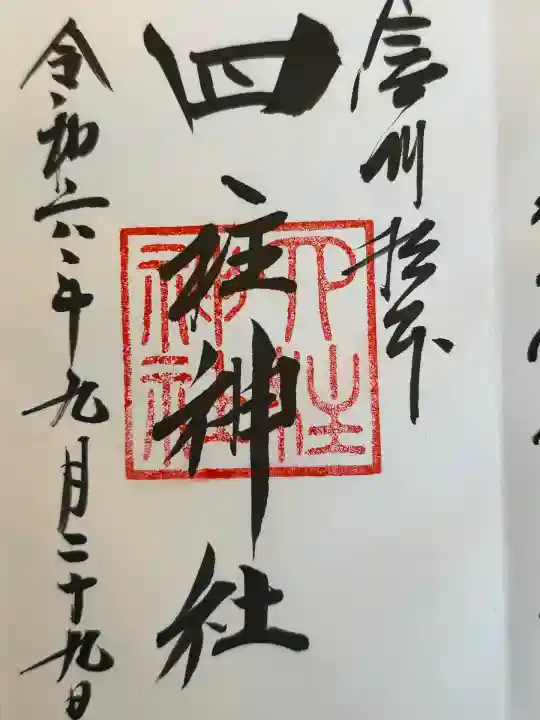 信州松本
四柱神社
四柱神社
令和六年九月二十九日